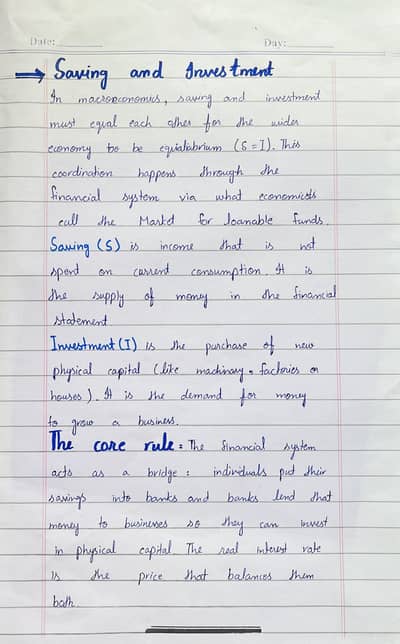 Date:
Day:
→ Saving and Investment
In macroeconomics, saving and investment
must equal each other for the wider
economy to be equialabrium (S = I). This
coordination happens through the
financial system via what economists
call the Market for loanable funds.
Saving (S) is income that is not
spend on current consumption. It is
the supply of money in the financial
statement
Investment (I) is the purchase of new
physical capital (like machinary, factories or
houses). It is the demand for money
to grow a business.
The core rule: The financial system
acts as a bridge: individuals put their
savings into banks and banks lend that
money to businesses so they can invest
in physical capital. The real interest rate
is the price that balances them
both